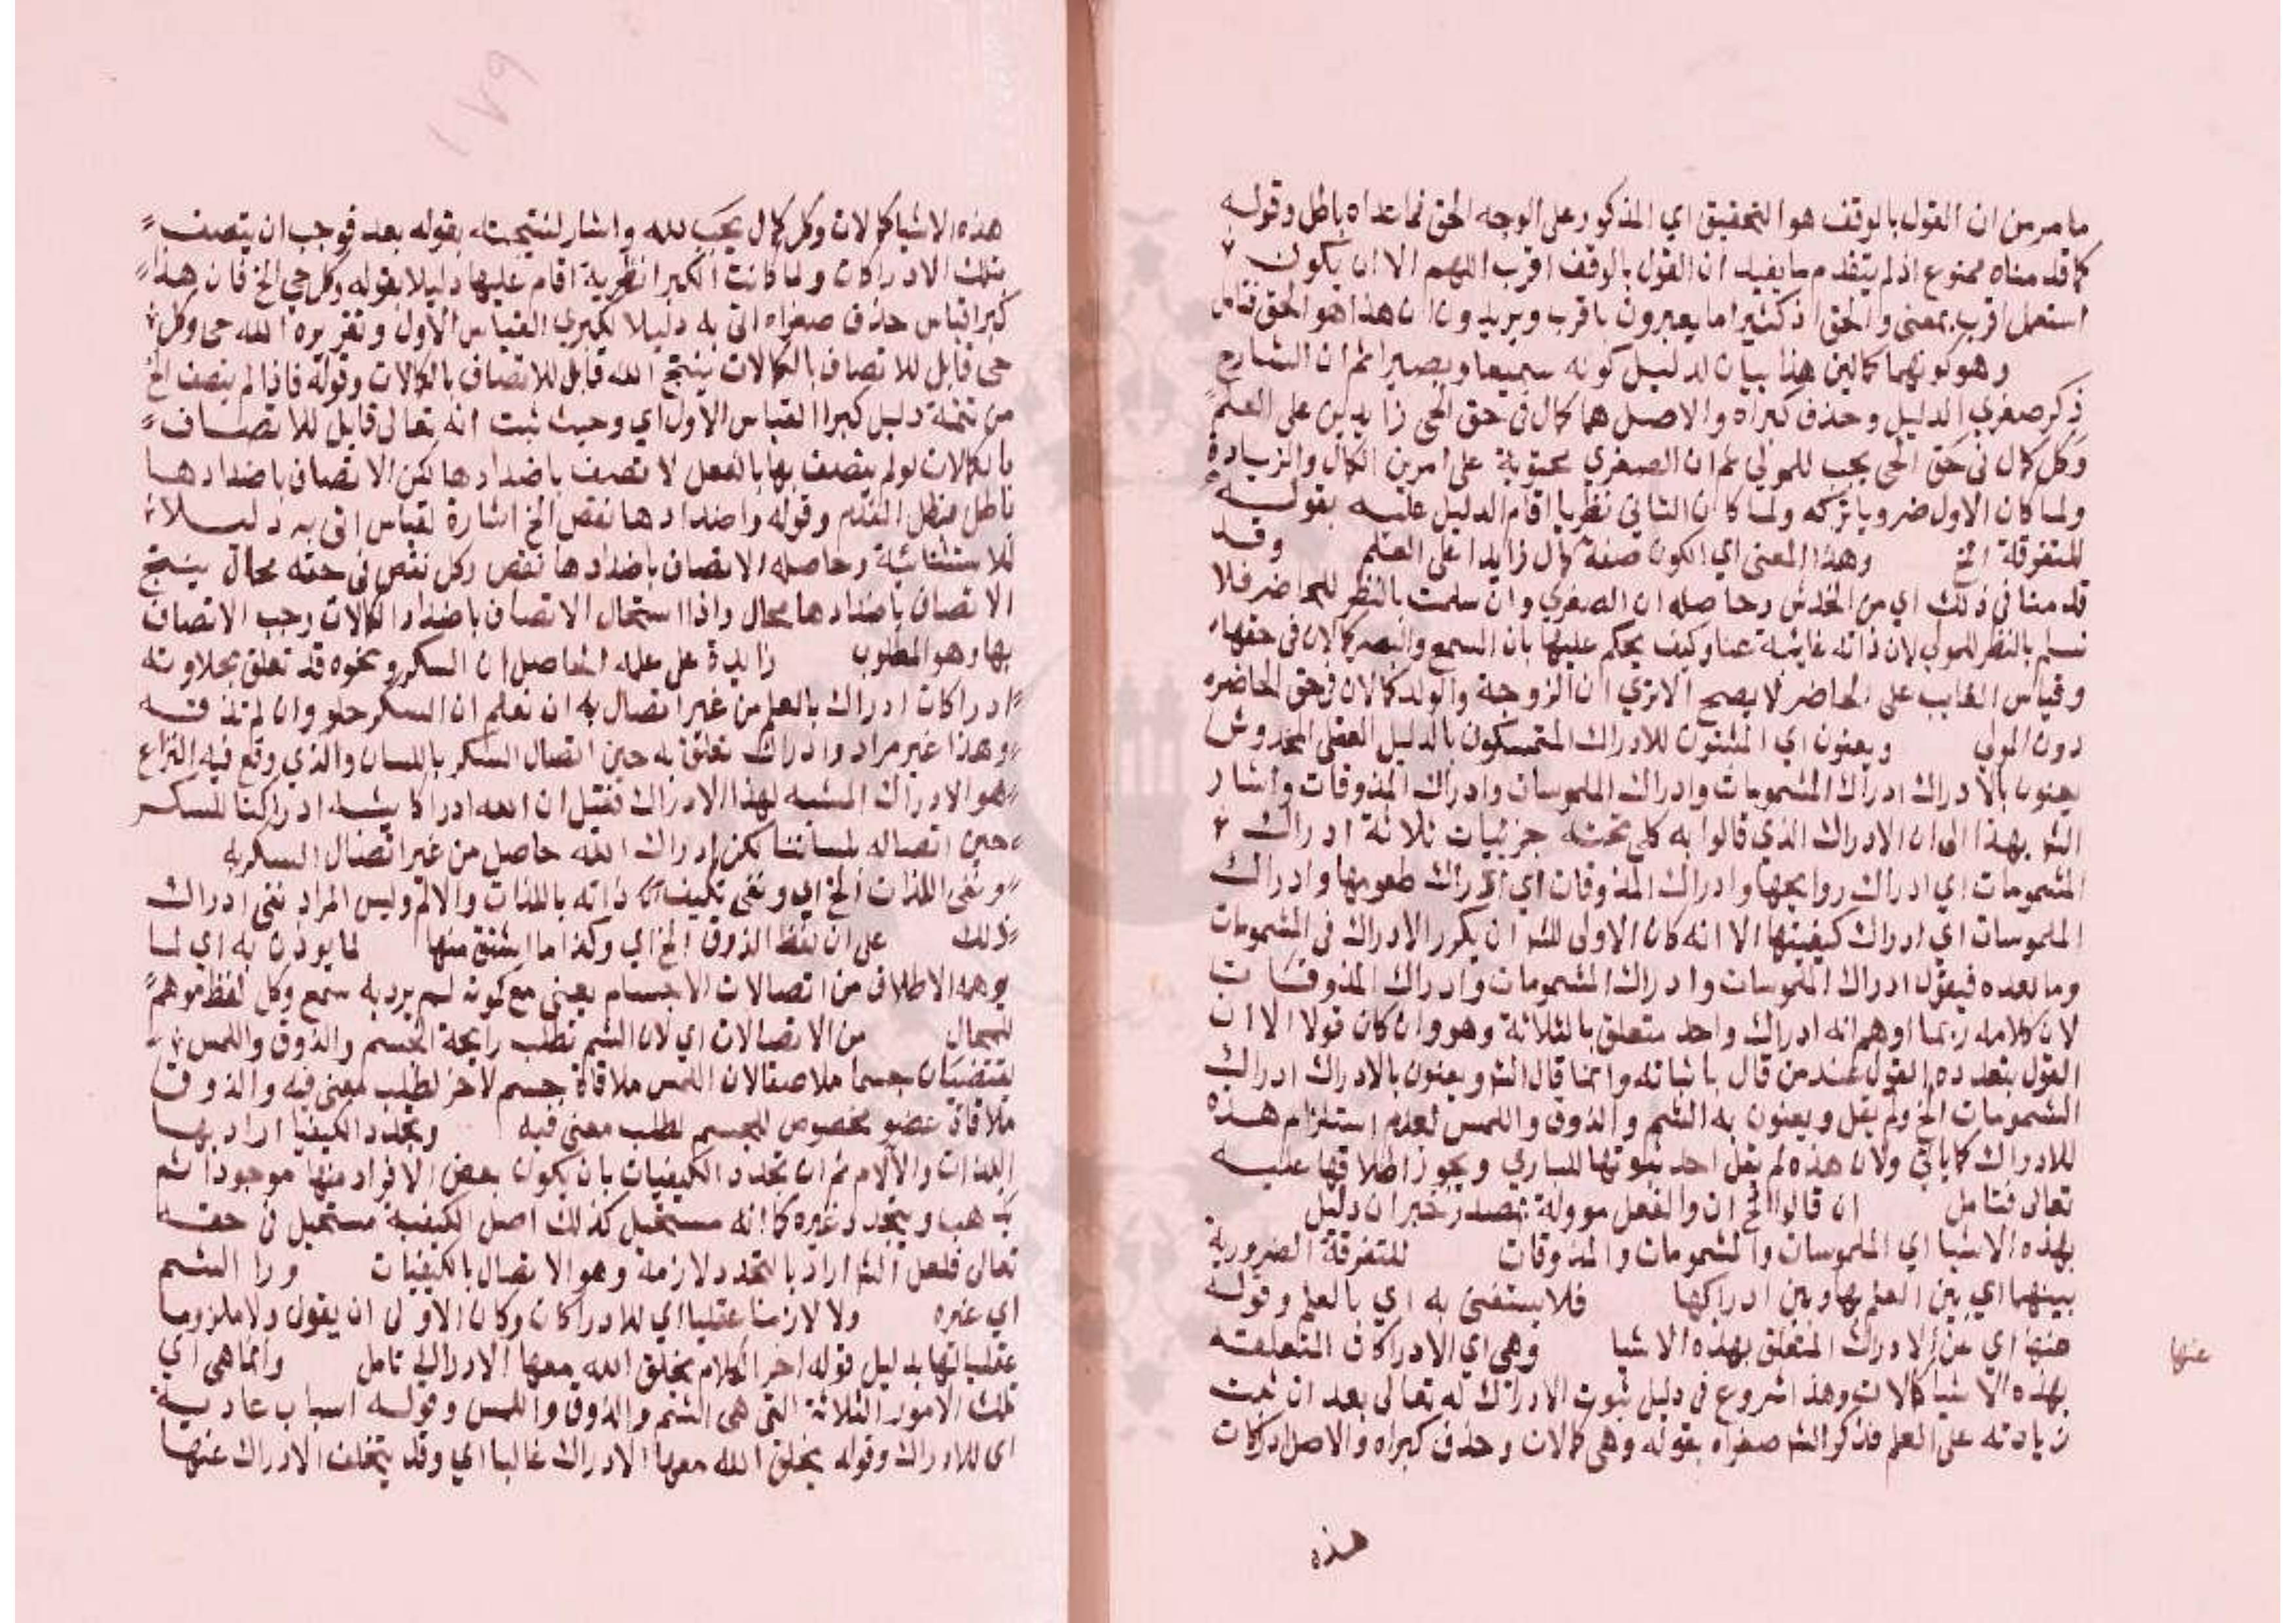 ما مر من ان القول بالوقف هو التحقيق اي المذكور على الوجه الحق فما عداه باطل وقوله
كما قدمناه ممنوع اذ لم يتقدم ما يفيد ان القول بالوقف اقرب اللهم الا ان يكون
استعمل اقرب بمعنى والحق اذ كثيرا ما يعبرون باقرب ويريدون ان هذا هو الحق فتامل
وهو كونهما كمالين هذا بيان لدليل كونه سميعا وبصيرا ثم ان الشارح
ذكر صغرى الدليل وحذف كبراه والاصل هما كمال في حق الحي زايدين على العلم
وكل كمال في حق الحي يجب للمولي ثم ان الصغري محتوية على امرين الكمال والزيادة
ولما كان الاول ضروريا تركه ولما كان الثاني نظريا اقام الدليل عليه بقوله
للتفرقة الخ وهذا المعنى اي الكون صفة كمال زايدا على العلم وقد
قدمنا في ذلك اي من الخدش وحاصله ان الصغري وان سلمت بالنظر للحاضر فلا
نسلم بالنظر للمولي لان ذاته غايبة عنا وكيف يحكم عليها بان السمع والبصر كمالان في حقها
وقياس الغايب على الحاضر لا يصح الا ترى ان الزوجة والولد كمالان في حق الحاضره
دون المولي ويعنون اي المثبتون للادراك المتمسكون بالدليل العقلي المخدوش
يعنون بالادراك ادراك المشمومات وادراك الملموسات وادراك المذوقات واشار
الش بهذا الى ان الادراك الذي قالوا به كلي تحته جزئيات ثلاثة ادراك
المشمومات اي ادراك روايحها وادراك المذوقات اي ادراك طعومها وادراك
الملموسات اي ادراك كيفيتها الا انه كان الاولى للش ان يكرر الادراك في المشمومات
وما بعده فيقول ادراك الملموسات وادراك المشمومات وادراك المذوقات
لان كلامه ربما اوهم انه ادراك واحد متعلق بالثلاثة وهو وان كان قولا الا ان
القول بتعدده القول عند من قال باثباته وانما قال الش ويعنون بالادراك ادراك
الشمومات الخ ولم يقل ويعنون به الشم والذوق واللمس لعدم استلزام هذه
للادراك كما ياتي ولان هذه لم يقل احد بثبوتها للباري ويجوز اطلاقها عليه
تعالى فتامل ان قالوا الخ ان والفعل مووله بمصدر خبر ان دليل
بهذه الاشيا اي الملموسات والمشمومات والمذوقات للتفرقة الضرورية
بينهما اي بين العلم بها وبين ادراكها فلا يستغنى به اي بالعلم وقوله
عنها اي عن الادراك المتعلق بهذه الاشيا وهي اي الادراكات المتعلقة
عنها
بهذه الاشيا كمالات وهذا شروع في دليل ثبوت الادراك له تعالى بعد ان ثبت
زيادته على العلم فذكر الش صغراه بقوله وهي كمالات وحذف كبراه والاصل ادراكات
هذه
١٧٩
هذه الاشيا كمالات وكل كمال يجب لله واشار لنتيجته بقوله بعد فوجب ان يتصف
بتلك الادراكات ولما كانت الكبرا نظرية اقام عليها دليلا بقوله وكل حي الخ فان هذا
كبرا قياس حذف صغراه اتى به دليلا لكبري القياس الاول وتقريره الله حي وكل
حي قابل للاتصاف بالكمالات ينتج الله قابل للاتصاف بالكمالات وقوله فاذا لم يتصف الخ
من تتمة دليل كبرا القياس الاول اي وحيث ثبت انه تعالى قابل للاتصاف
بالكمالات لو لم يتصف بها بالفعل لاتصف باضدادها لكن الاتصاف باضدادها
باطل فبطل المقدم وقوله واضدادها نقص الخ اشارة لقياس اتى به دليلا
للاستثنائية وحاصله الاتصاف باضدادها نقص وكل نقص في حقه محال ينتج
الاتصاف باضدادها محال واذا استحال الاتصاف باضداد الكمالات وجب الاتصاف
بها وهو المطلوب زايدة على علمه الحاصل ان السكر ونحوه قد تعلق بحلاوته
ادراكات ادراك بالعلم من غير اتصال به ان نعلم ان السكر حلو وان لم نذقه
وهذا غير مراد وادراك تعلق به حين اتصال السكر باللسان والذي وقع فيه النزاع
هو الادراك الشبيه لهذا الادراك فقيل ان لله ادراكا يشبه ادراكنا للسكر
حين اتصاله بلساننا لكن ادراك الله حاصل من غير اتصال السكر به
ونفى اللذات الخ اي ونفى تكيف ذاته باللذات والالم وليس المراد نفى ادراك
ذلك على ان لفظ الذوق الخ اي وكذا ما اشتق منها لما يوذن به اي لما
يوهمه الاطلاق من اتصالات الاجسام يعني مع كونه لم يرد به سمع وكل لفظ موهم
للمحال من الاتصالات اي لان الشم تطلب رايحة الجسم والذوق واللمس
يقتضيان جسما ملاصقا لان اللمس ملاقاة جسم لاخر لطلب معنى فيه والذوق
ملاقاة عضو مخصوص للجسم لطلب معنى فيه وتجدد الكيفيا اراد بها
اللذات والالام ثم ان تجدد الكيفيات بان يكون بعض الافراد منها موجودا ثم
يذهب ويتجدد غيره كما انه مستحيل كذلك اصل الكيفية مستحيل في حقه
تعالى فلعل الش اراد بالتجدد لازمة وهو الاتصال بالكيفيات ورا الشم
اي غيره ولا لازما عقليا اي للادراكات وكان الاولى ان يقول ولا ملزوما
عقليا لها بدليل قوله اخر الكلام يخلق الله معها الادراك تامل وانما هي اي
تلك الامور الثلاثة التي هي الشم والذوق واللمس وقوله اسباب عادية
اي للادراك وقوله يخلق الله معها الادراك غالبا اي وقد يتخلف الادراك عنها